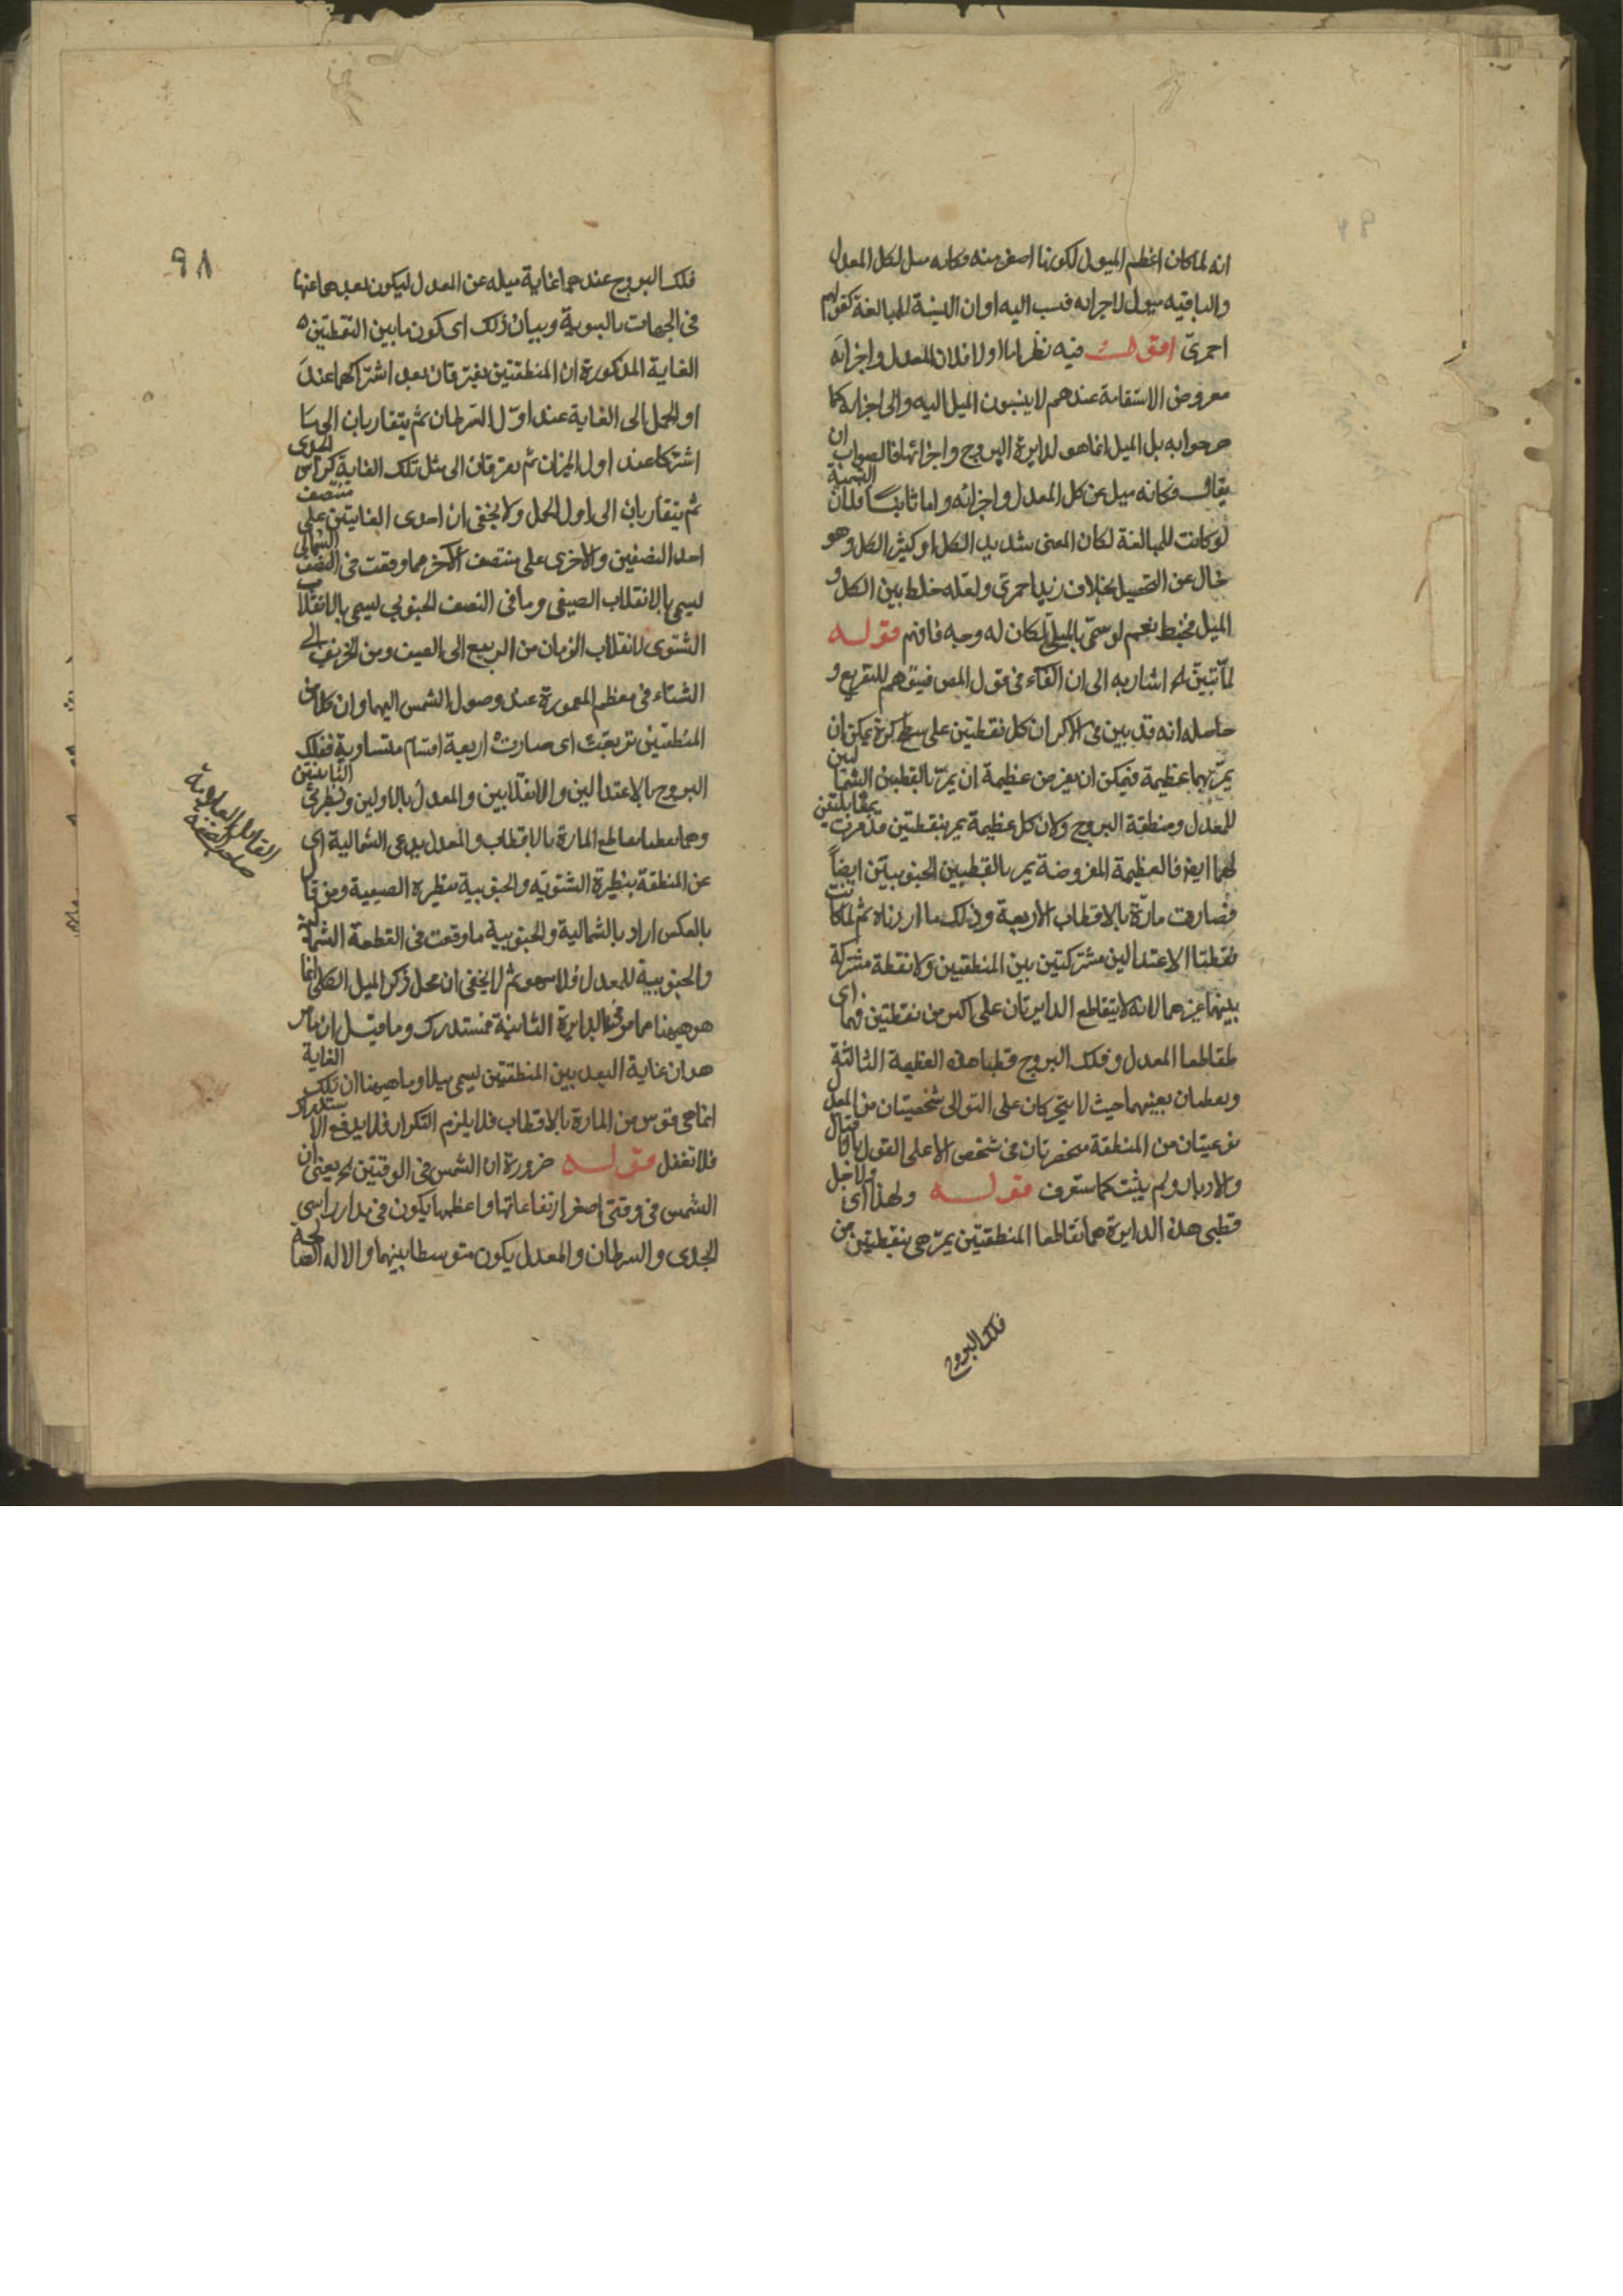 انه لما كان اعظم الميول لكونها اصغر منه فكانه ميل لكل المعدل
والباقيه ميول لاجزايه فنسب اليه او ان النسبة للمبالغة كقولهم
احمرى اقول فيه نظر اما اولا فلان المعدل واجزائه
معروض الاستقامة عندهم لا ينسبون الميل اليه والى اجزايه كما
صرحوا به بل الميل انما هو لدايرة البروج واجزائها فالصواب ان
يقال فكانه ميل عن كل المعدل واجزائه واما ثانيا فلان النسبة
لو كانت للمبالغة لكان المعنى شديد الكل او كثير الكل وهو
خال عن التحصيل بخلاف زيد احمرى ولعله خلط بين الكل و
الميل فخبط نعم لو سمى بالميلى لكان له وجه فافهم قوله
لما تبين له اشار به الى ان الفاء فى قول المص فيتوهم للتفريع و
حاصله انه قد بين فى الاكر ان كل نقطتين على سطح كرة يمكن ان
يمر بهما عظيمة فيمكن ان يفرض عظيمة ان يمر بالقطبين الشماليين
للمعدل ومنطقة البروج ولان كل عظيمة يمر بنقطتين مرت بمقابلتين
لهما ايضا فالعظيمة المفروضة يمر بالقطبين الجنوبيين ايضاً
فصارت مارة بالاقطاب الاربعة وذلك ما اردناه ثم لما كانت
نقطتا الاعتدالين مشتركتين بين المنطقتين ولا نقطة مشتركة
بينهما غيرهما لانه لا يتقاطع الدايرتان على اكثر من نقطتين فهما اى
تقاطعا المعدل وفلك البروج قطبا هذه العظيمة الثالثة
بعينهما حيث لا يتحركان على التوالى شخصيتان من المعدل
نوعيتان من المنطقة منحصرتان فى شخص الا على القول بالاقبال
والادبار ولم يثبت كما ستعرف قوله ولهذا اى ولاجل
قطبى هذه الدايرة هما تقاطعا المنطقتين يمر هى بنقطتين من
فلك البروج
٩٨
فلك البروج عندهما غاية ميله عن المعدل ليكون بعدهما عنها
فى الجهات بالسوية وبيان ذلك اى كون ما بين النقطتين
الغاية المذكورة ان المنطقتين يفترقان بعد اشتراكهما عند
اول الحمل الى الغاية عند اول السرطان ثم يتقاربان الى ما
اشتركا عند اول الميزان ثم يفترقان الى مثل تلك الغاية كراس الجدى
ثم يتقاربان الى اول الحمل ولا يخفى ان احدى الغايتين على منتصف
احد النصفين والاخرى على منتصف الآخر مما وقعت فى النصف الشمالى
يسمى بالانقلاب الصيفى وما فى النصف الجنوبى يسمى بالانقلاب
الشتوى لانقلاب الزمان من الربيع الى الصيف ومن الخريف الى
الشتاء فى معظم المعمورة عند وصول الشمس اليهما وان كلا من
المنطقتين تربعت اى صارت اربعة اقسام متساوية ففلك
البروج بالاعتدالين والانقلابين والمعدل بالاولين ونظيرتى الثانيتين
وهما نقطتا تقاطع المارة بالاقطاب والمعدل يدعى الشمالية اى
عن المنطقة بنظيرة الشتويه والجنوبية بنظيرة الصيفية ومن قال
بالعكس اراد بالشمالية والجنوبية ما وقعت فى القطعة الشمالية
والجنوبية للمعدل فلا سهو ثم لا يخفى ان محل ذكر الميل الكلى انما
هو هيهنا مما مر فى الدايرة الثانية فمستدرك وما قيل ان ما مر
هو ان غاية البعد بين المنطقتين يسمى ميلا وما هيهنا ان تلك الغاية
انما هى قوس من المارة بالاقطاب فلا يلزم التكرار فلا يدفع الاستدراك
فلا تغفل قوله ضرورة ان الشمس فى الوقتين له يعنى ان
الشمس فى وقتى اصغر ارتفاعاتها واعظمها يكون فى مدار راسى
الجدى والسرطان والمعدل يكون متوسطا بينهما والاله الصالحة
القايل العلامة
صاحب التحفة